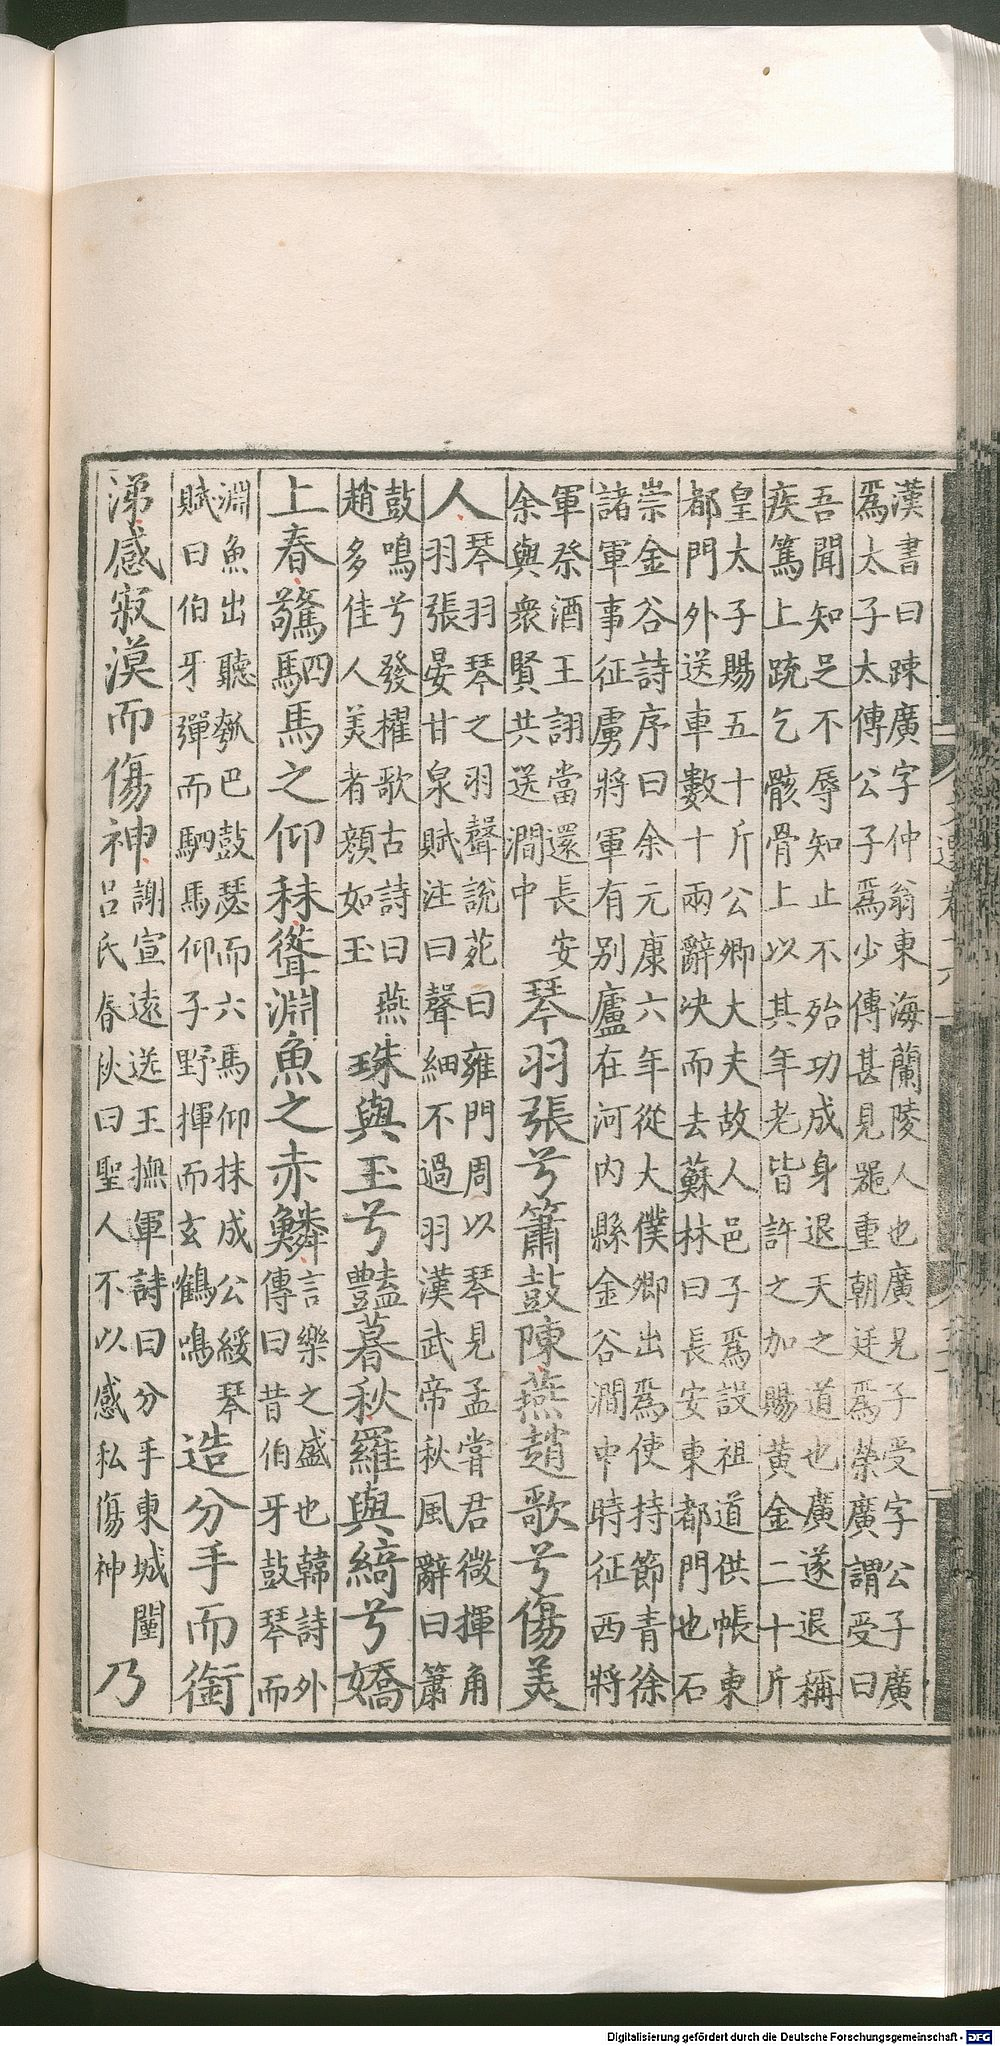 漢書曰踈廣字仲翁東海蘭陵人也廣兄子受字公子廣
爲太子太傳公子爲少傳甚見噐重朝廷爲榮廣謂受曰
吾聞知足不辱知止不殆功成身退天之道也廣遂退稱
疾篤上䟽乞骸骨上以其年老皆許之加賜黄金二十斤
皇太子賜五十斤公卿大夫故人邑子爲設祖道供帳東
都門外送車數十兩辭决而去蘇林曰長安東都門也石
崇金谷詩序曰余元康六年從大僕卿出爲使持節青徐
諸軍事征虜將軍有別廬在河内縣金谷澗中時征西將
軍祭酒王詡當還長安
余與衆賢共送澗中
琴羽張兮簫鼓陳燕趙歌兮傷美
人
琴羽琴之羽聲說苑曰雍門周以琴見孟嘗君微揮角
羽張晏甘泉賦注曰聲細不過羽漢武帝秋風辭曰簫
鼓鳴兮發櫂歌古詩曰燕
趙多佳人美者顏如玉
珠與玉兮豔暮秋羅與綺兮嬌
上春驚駟馬之仰秣聳淵魚之赤鱗
言樂之盛也韓詩外
傳曰昔伯牙鼓琴而
淵魚出聽瓠巴鼓瑟而六馬仰抹成公綏琴
賦曰伯牙彈而駟馬仰子野揮而玄鶴鳴
造分手而銜
涕感寂漠而傷神
謝宣遠送王撫軍詩曰分手東城闉
呂氏春秋曰聖人不以感私傷神
乃
Digitalisierung gefördert durch die Deutsche Forschungsgemeinschaft - DFG